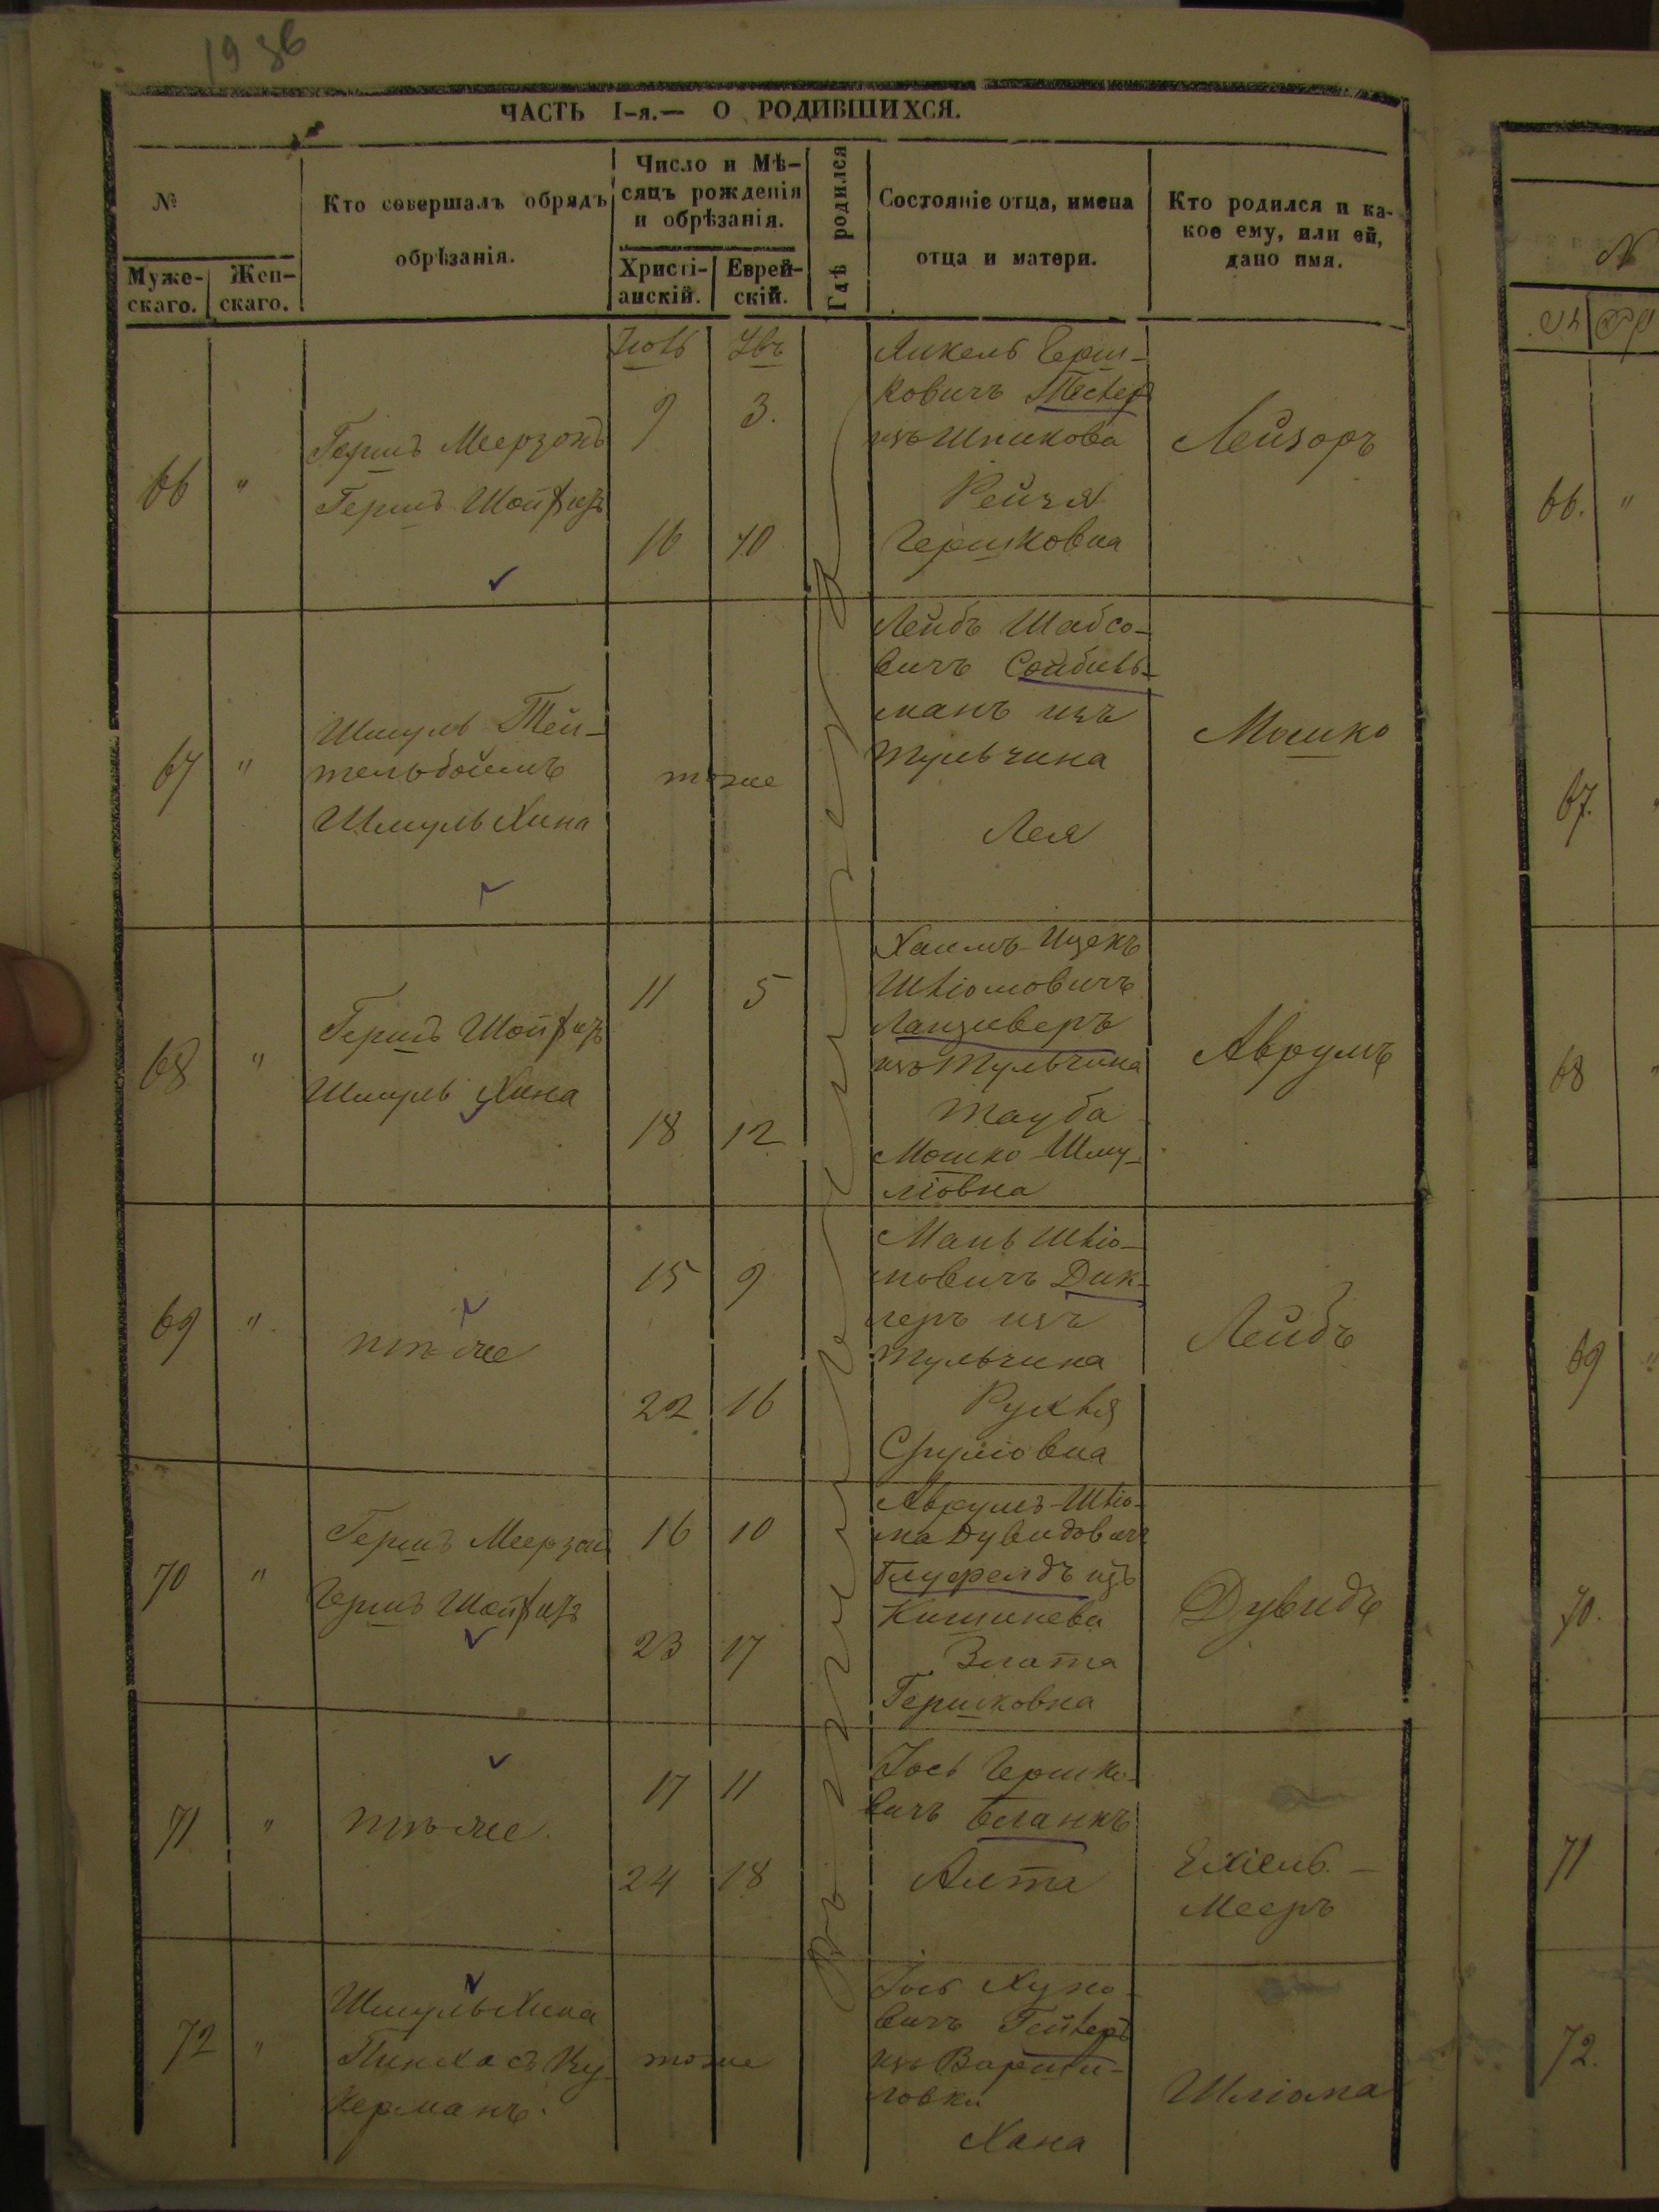 1936
ЧАСТЬ I-я.— О РОДИВШИХСЯ.
№
Муже-
скаго.
Жен-
скаго.
Кто совершалъ обрядъ
обрѣзанія.
Число и Мѣ-
сяцъ рожденія
и обрѣзанія.
Христі-
анскій.
Еврей-
скій.
Гдѣ родился
Состояніе отца, имена
отца и матери.
Кто родился и ка-
кое ему, или ей,
дано имя.
66 "
Гершъ Меерзонъ
Гершъ Шойхетъ
9 3.
16 10
Янкель Герш-
ковичъ Тестер
изъ Шпикова
Рейзя
Гершковна
Лейзоръ
67 "
Шмуль Тей-
тельбоймъ
Шмуль Хина
тоже
Лейбъ Шабсо-
вичъ
манъ изъ
Тульчина
Лея
Мошко
68 "
Гершъ Шойхетъ
Шмуль Хина
11 5
18 12
Хаимъ-Ицекъ
Шліомовичъ
изъ Тульчина
Тауба
Мошко-Шму-
ліовна
Аврумъ
69 "
тоже
15 9
22 16
Мань Шліо-
мовичъ Дик-
леръ изъ
Тульчина
Рухля
Сруліовна
Лейбъ
70 "
Гершъ Меерзон
Гершъ Шойхетъ
16 10
23 17
Аврумъ-Шліо-
ма Дувидович
изъ
Кишинева
Злота
Гершковна
Дувидъ
71 "
тоже.
17 11
24 18
Іось Гершко-
вичъ Бланкъ
Алта
Ехіель-
Мееръ
72 "
Шмуль Хина
Пинхасъ Ку-
керманъ.
тоже
Іось
вичъ
изъ
ловки
Хана
Шліома
66. "
67.
68
69 "
70.
71
72.